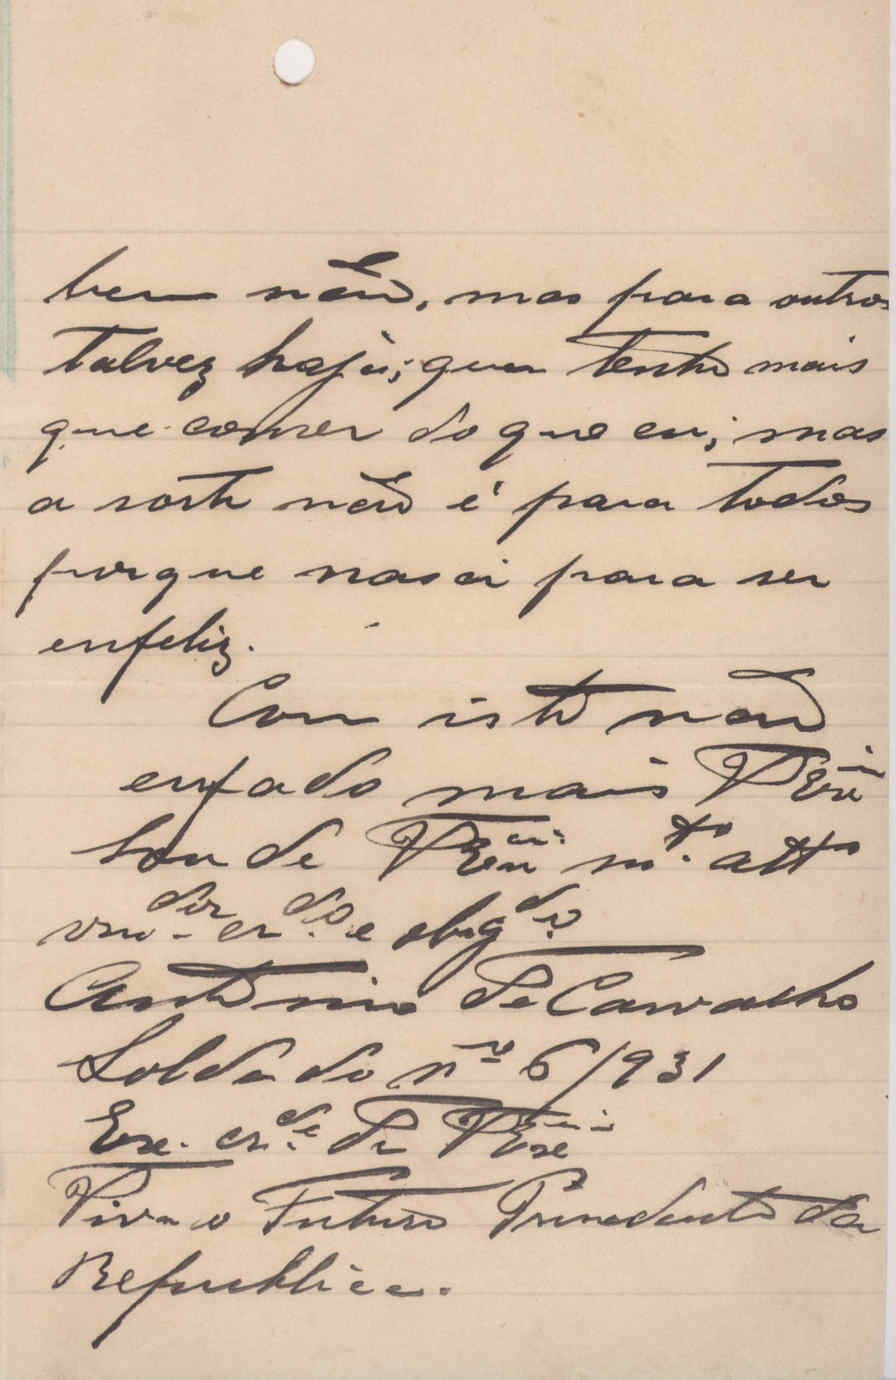 bem não, mas para outros
talvez hajà; quem tenho mais
que comer do que eu; mas
a sorte não é para todos
porque nasci para ser
enfeliz.
Com isto não
enfado mais V Exciª
Sou de V Exciª mto. attº
vnrdor erdo. e obrigdo.
Antonio de Carvalho
Soldado nº 6/931
Exe. crde. de V Excia
Viva o Futuro Prinedente da
Republica.